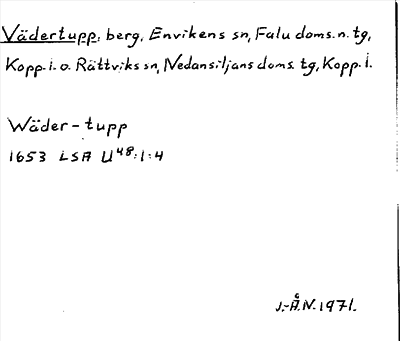 Vädertupp: berg, Envikens sn, Falu doms.n.tg,
Kopp.i.o. Rättviks sn, Nedansiljans doms. tg, Kopp.l.
Wäder-tupp
1653 LSA U48:1:4
J.-Å.N.1971.